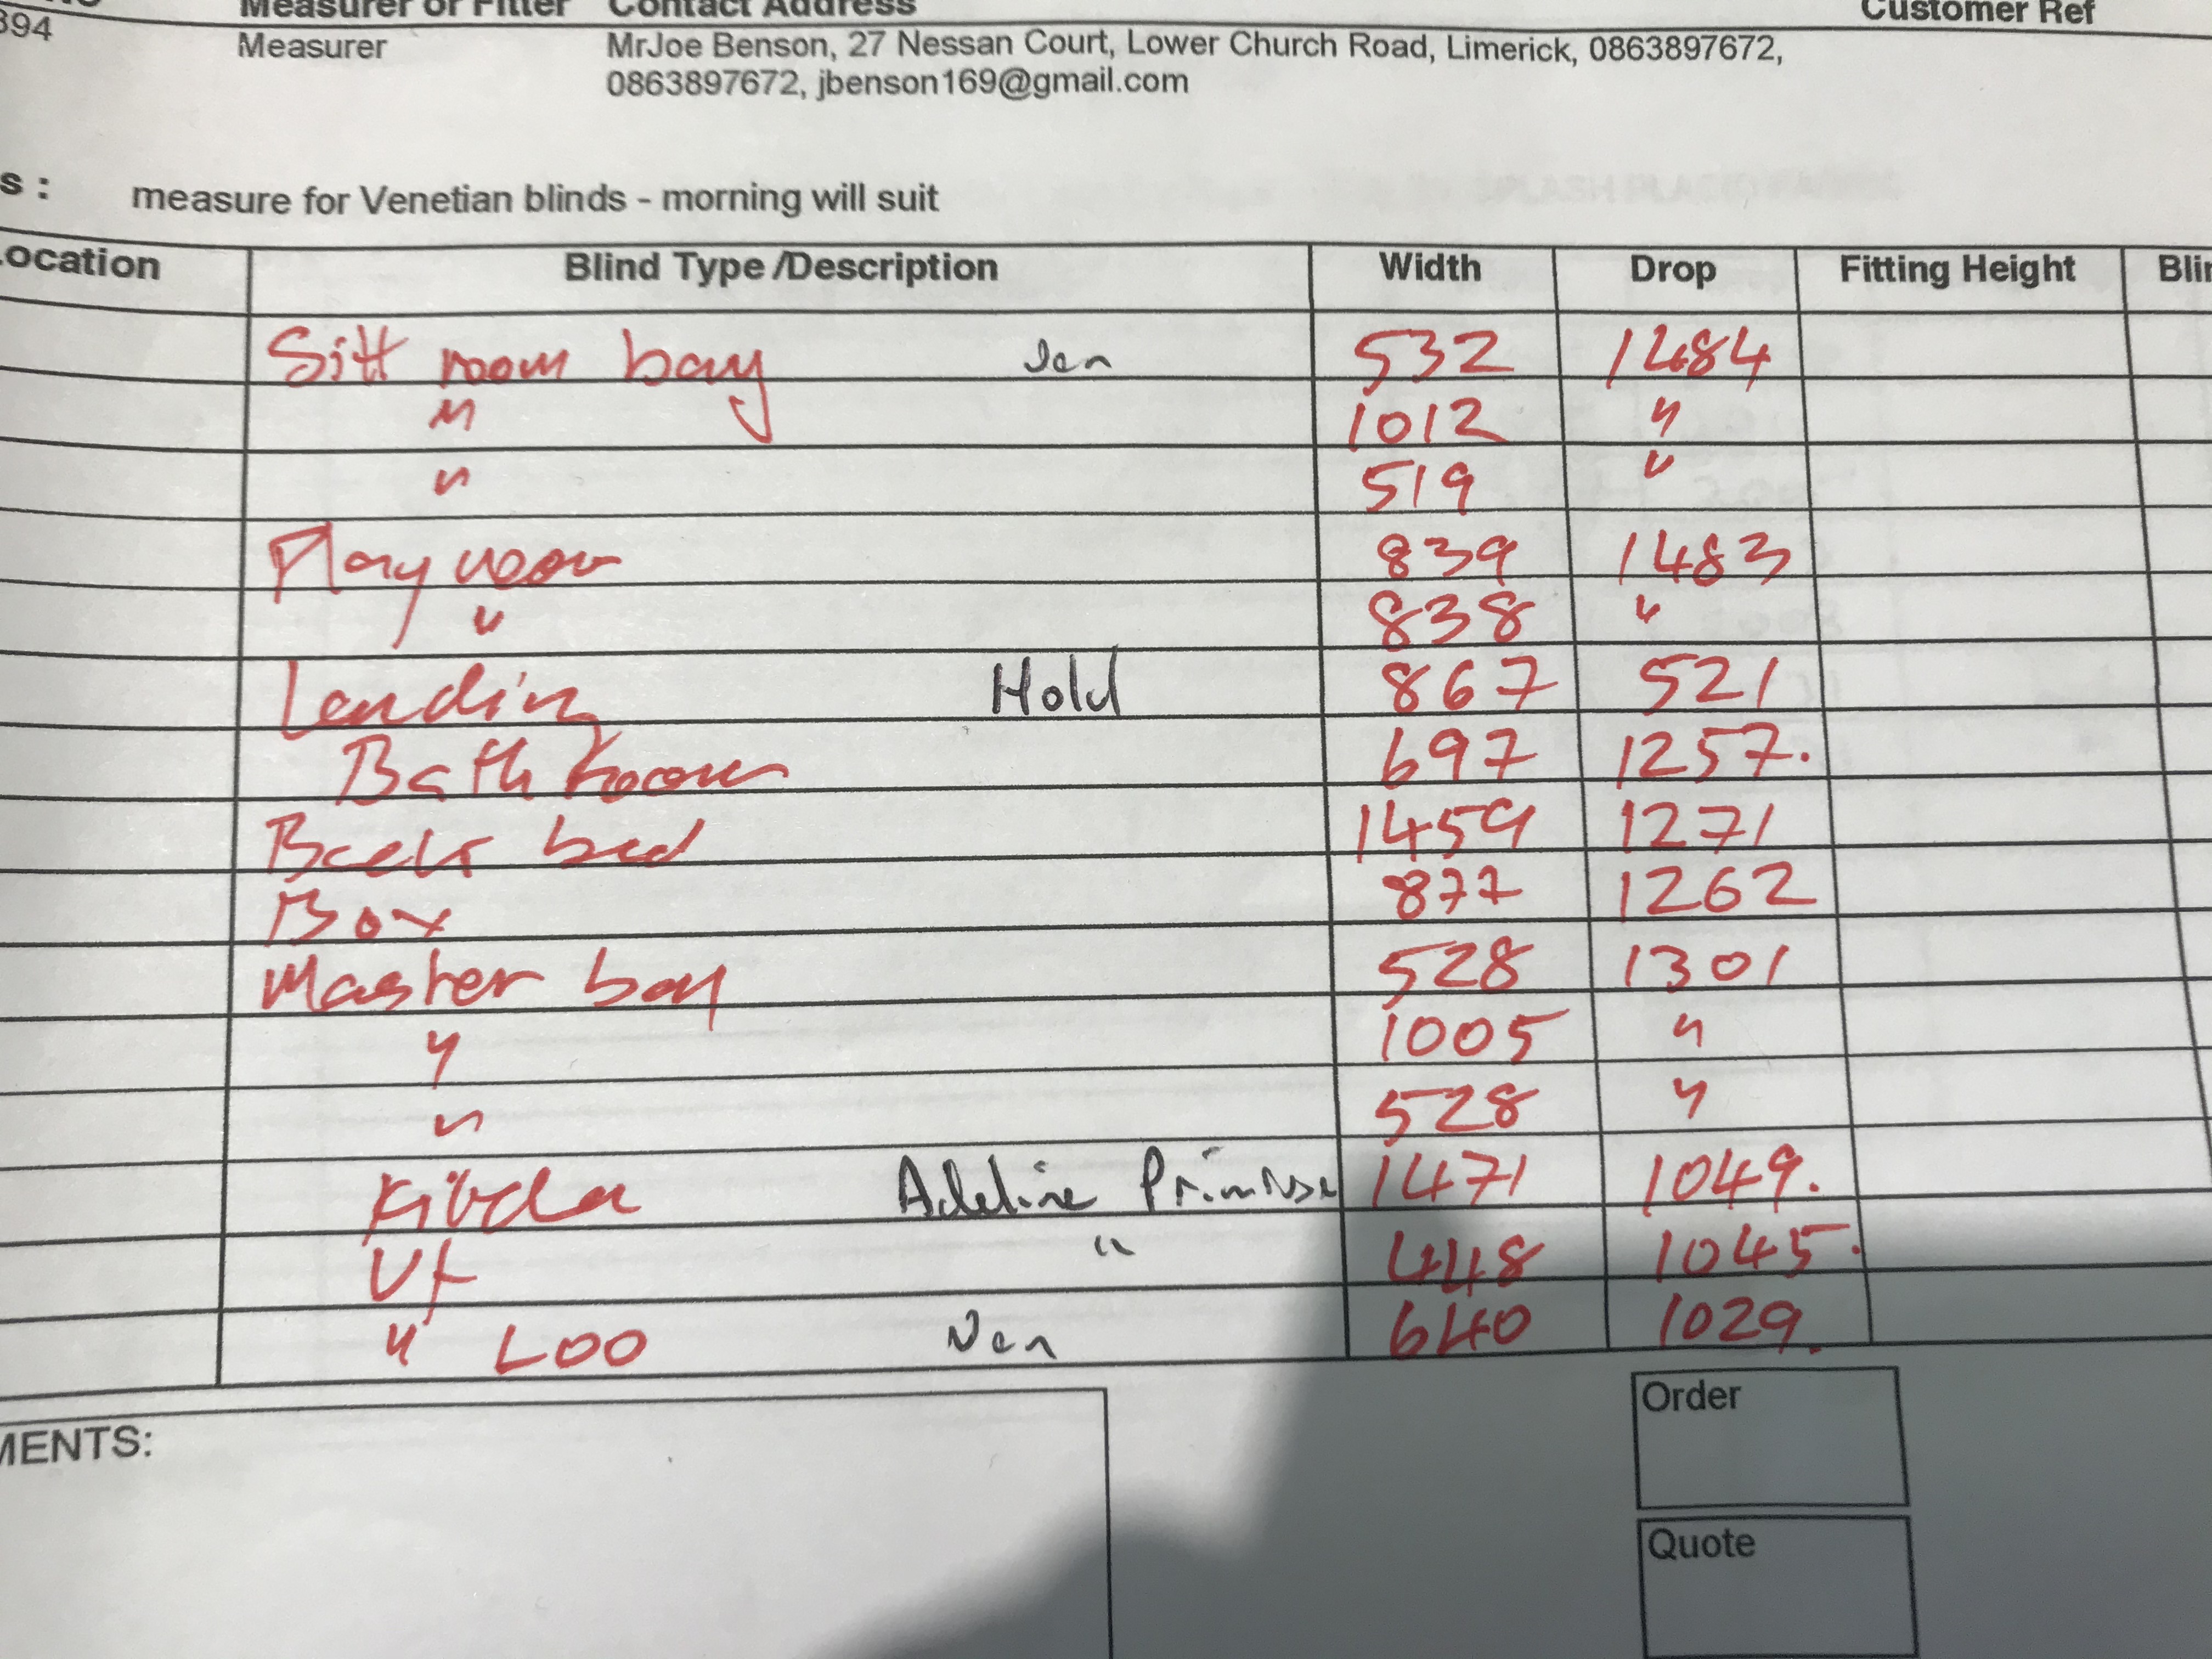 Measurer or Fitter Contact Address Customer Ref
394 Measurer MrJoe Benson, 27 Nessan Court, Lower Church Road, Limerick, 0863897672,
0863897672, jbenson169@gmail.com
s : measure for Venetian blinds - morning will suit
Location Blind Type /Description Width Drop Fitting Height Blin
Sitt room bay 532 1484
" 1012 "
" 519 "
Play room 839 1483
" 838 "
Landing Hold 867 521
Bathroom 697 1257.
Back bed 1459 1271
Box 877 1262
Master bay 528 1301
" 1005 "
" 528 "
Kitchen Adeline Primrose 1471 1049.
Ut " 448 1045.
" LOO Ven 640 1029.
MENTS:
Order
Quote